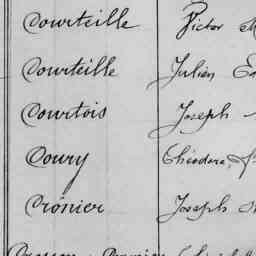 Courteille Victor
Courteille Julien
Courtois Joseph
Coury Théodore
Crónier Joseph